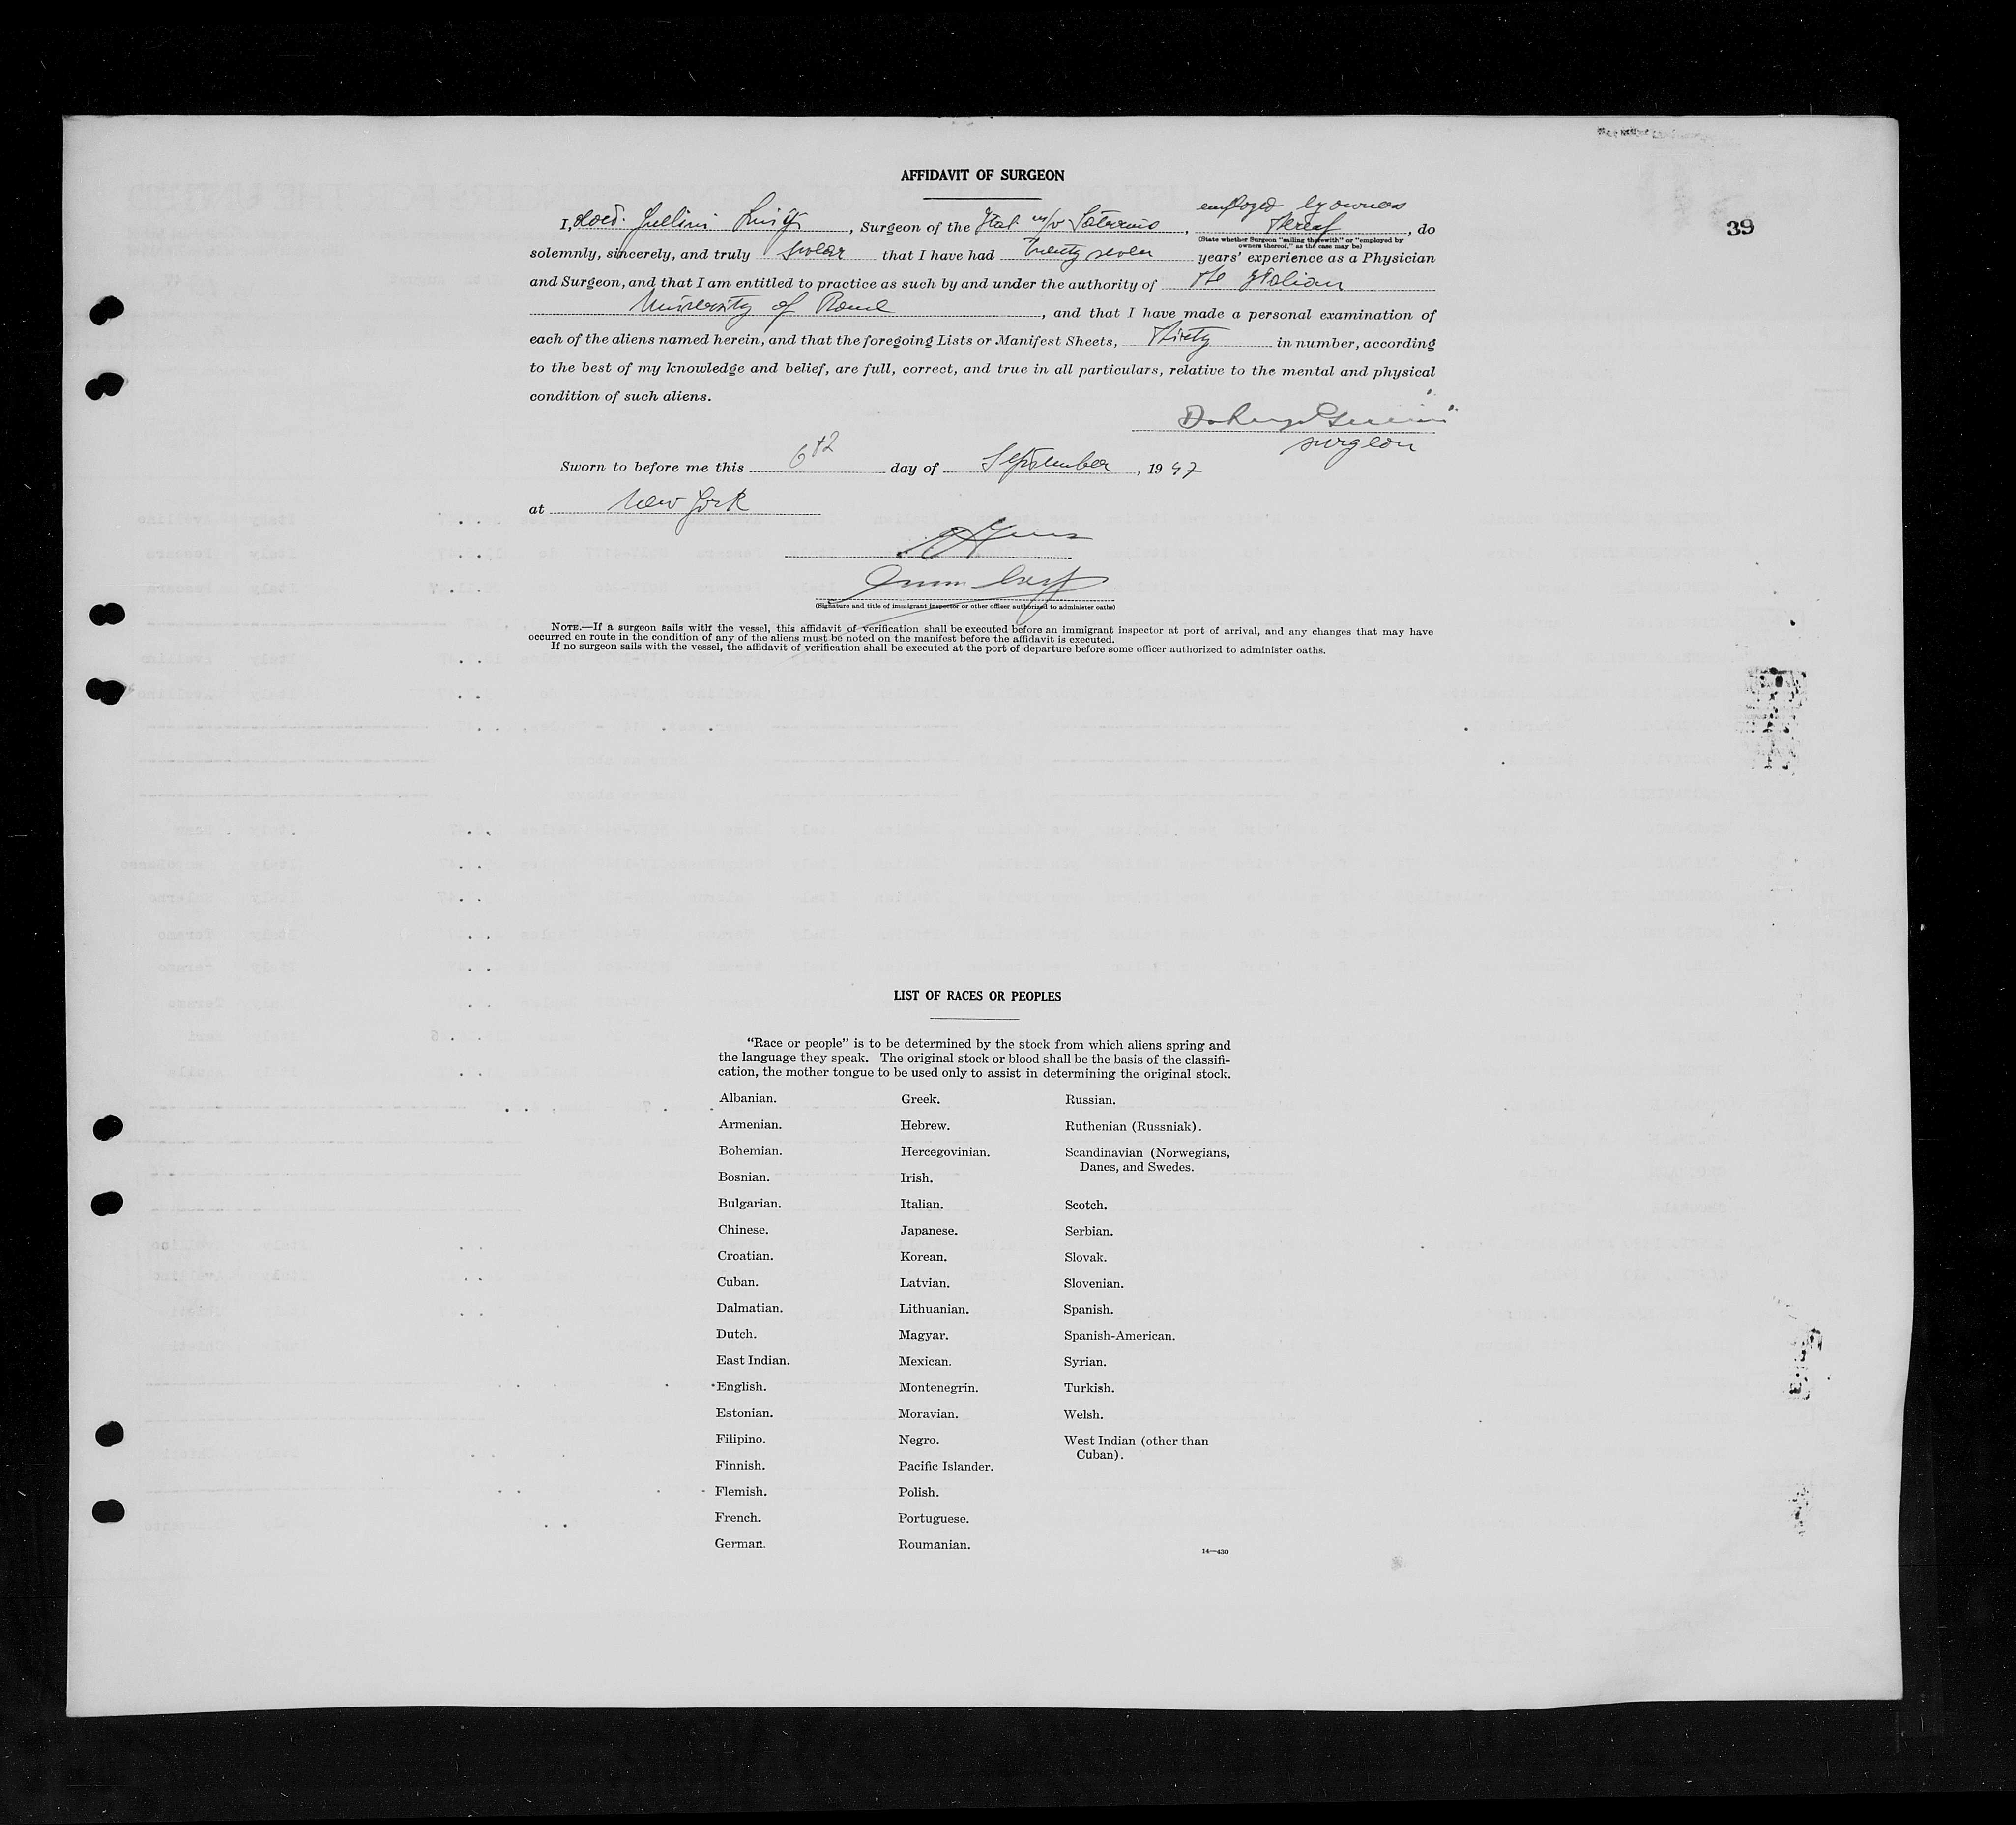 AFFIDAVIT OF SURGEON
39
employed by owners
I, Luigi, Surgeon of the Ital m/v Saturnia, thereof, do
(State whether Surgeon "sailing therewith" or "employed by
owners thereof," as the case may be)
solemnly, sincerely, and truly swear that I have had twenty seven years' experience as a Physician
and Surgeon, and that I am entitled to practice as such by and under the authority of the Italian
University of Rome, and that I have made a personal examination of
each of the aliens named herein, and that the foregoing Lists or Manifest Sheets, Thirty in number, according
to the best of my knowledge and belief, are full, correct, and true in all particulars, relative to the mental and physical
condition of such aliens.
surgeon
Sworn to before me this 6th day of September, 1947
at New York
(Signature and title of immigrant inspector or other officer authorized to administer oaths)
NOTE.—If a surgeon sails with the vessel, this affidavit of verification shall be executed before an immigrant inspector at port of arrival, and any changes that may have
occurred en route in the condition of any of the aliens must be noted on the manifest before the affidavit is executed.
If no surgeon sails with the vessel, the affidavit of verification shall be executed at the port of departure before some officer authorized to administer oaths.
LIST OF RACES OR PEOPLES
"Race or people" is to be determined by the stock from which aliens spring and
the language they speak. The original stock or blood shall be the basis of the classifi-
cation, the mother tongue to be used only to assist in determining the original stock.
Albanian.
Armenian.
Bohemian.
Bosnian.
Bulgarian.
Chinese.
Croatian.
Cuban.
Dalmatian.
Dutch.
East Indian.
English.
Estonian.
Filipino.
Finnish.
Flemish.
French.
German.
Greek.
Hebrew.
Hercegovinian.
Irish.
Italian.
Japanese.
Korean.
Latvian.
Lithuanian.
Magyar.
Mexican.
Montenegrin.
Moravian.
Negro.
Pacific Islander.
Polish.
Portuguese.
Roumanian.
Russian.
Ruthenian (Russniak).
Scandinavian (Norwegians,
Danes, and Swedes.
Scotch.
Serbian.
Slovak.
Slovenian.
Spanish.
Spanish-American.
Syrian.
Turkish.
Welsh.
West Indian (other than
Cuban).
14—430